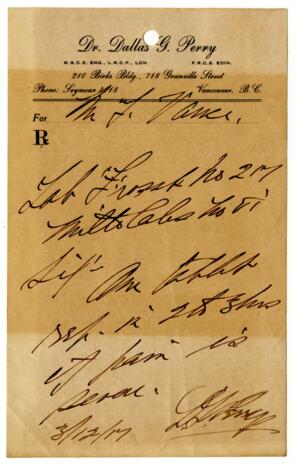 Dr. Dallas G. Perry
M.R.C.S. ENG., L.R.C.P., LDN. F.R.C.S. EDIN.
210 Birks Bldg., 718 Granville Street
Phone: Seymour 18 Vancouver, B.C.
For M J. Vance.
Rx
Lab Frosst No 217
No
Sig- One tablet
rep. in 2 to 3 hrs
if pain is
severe.
3/12/17 Perry